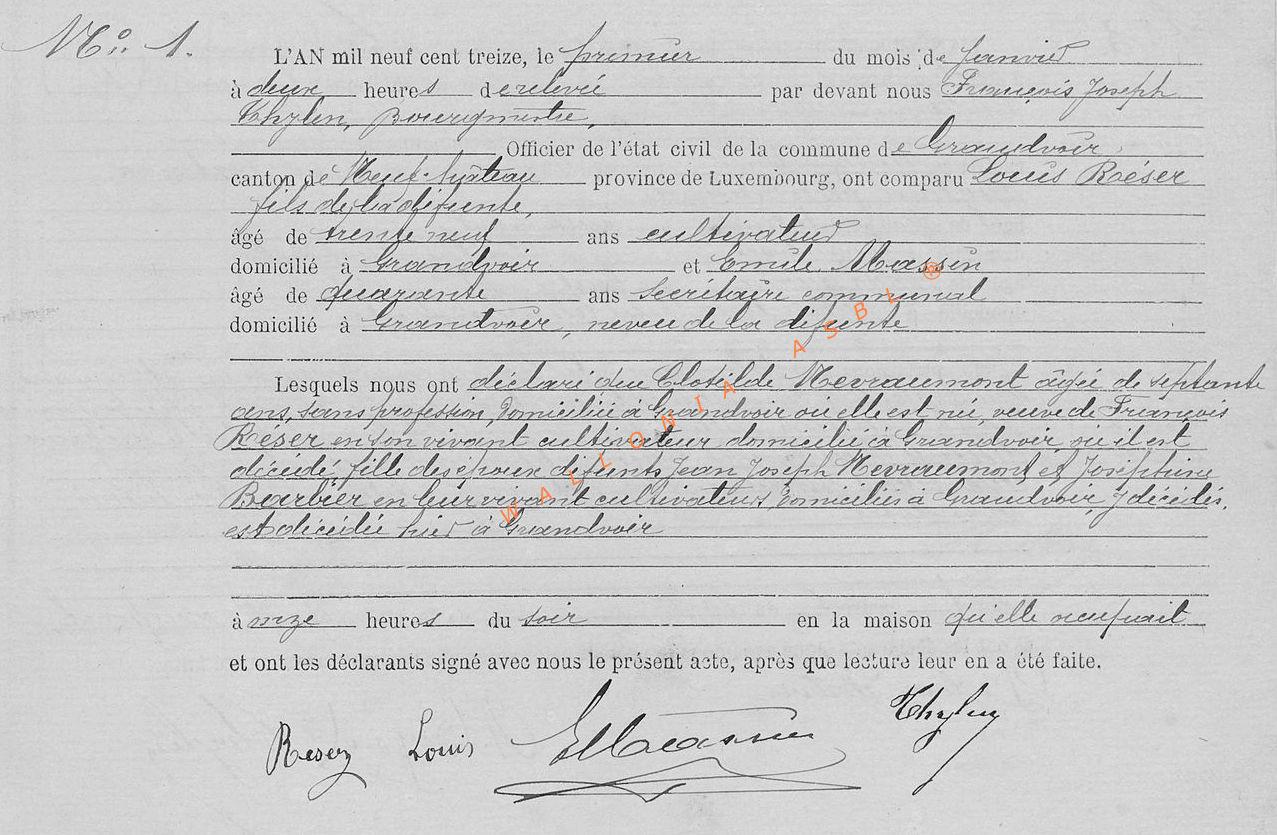 No. 1.
L'AN mil neuf cent treize, le premier du mois de Janvier
à deux heures de relevée par devant nous François Joseph
Thylen, Bourgmestre,
Officier de l'état civil de la commune de Grandvoir,
canton de Neufchâteau province de Luxembourg, ont comparu Louis Réser
fils de la défunte,
âgé de trente neuf ans cultivateur
domicilié à Grandvoir et Emile Massin
âgé de quarante ans secrétaire communal
domicilié à Grandvoir, neveu de la défunte
Lesquels nous ont déclaré que Clotilde Nevraumont âgée de septante
ans, sans profession, domiciliée à Grandvoir où elle est née, veuve de François
Réser en son vivant cultivateur domicilié à Grandvoir où il est
décédé, fille des époux défunts Jean Joseph Nevraumont et Joséphine
Barbier en leur vivant cultivateurs, domiciliés à Grandvoir, y décédés,
est décédée hier à Grandvoir
à onze heures du soir en la maison qu'elle occupait
et ont les déclarants signé avec nous le présent acte, après que lecture leur en a été faite.
Reser Louis EMassin Thylen
WALLONIA ASBL ®